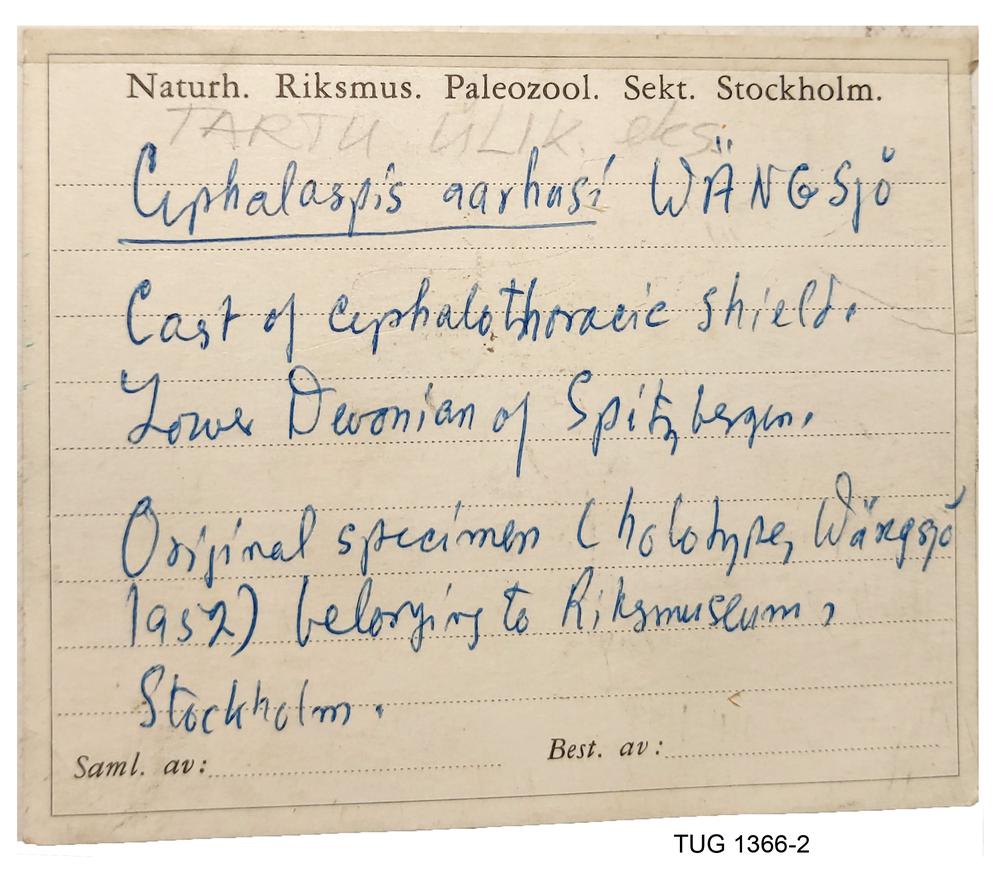 Naturh. Riksmus. Paleozool. Sekt. Stockholm.
TARTU ÜLIK. eks.
Cephalaspis aarhusi WÄNGSJÖ
Cast of cephalothoracic shield.
Lower Devonian of Spitzbergen.
Original specimen (holotype, Wängsjö
1952) belonging to Riksmuseum,
Stockholm.
Saml. av:
Best. av:
TUG 1366-2